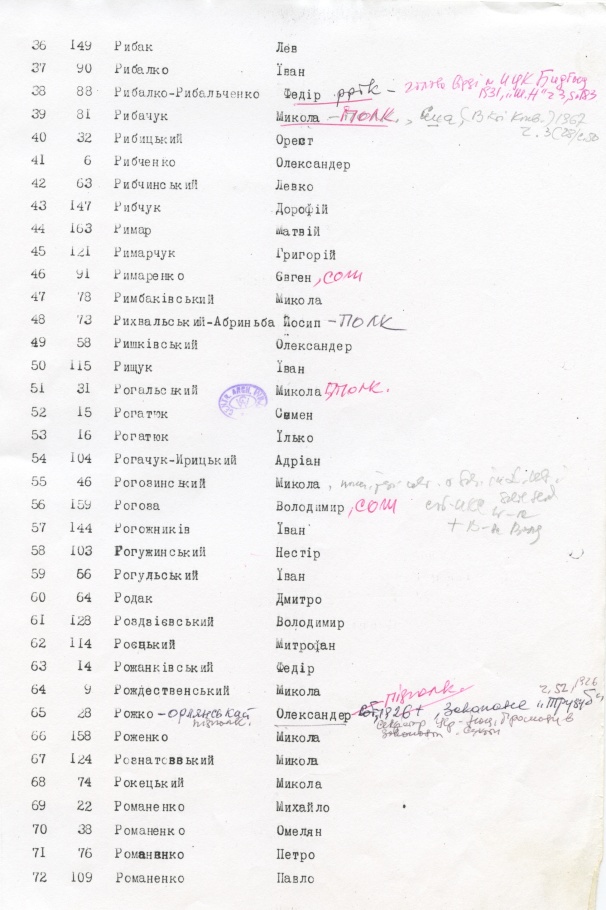 36 149 Рибак Лев
37 90 Рибалко Їван
38 88 Рибалко-Рибальченко Федір
1931, "Ш.Н" ч 3, s. 183
39 81 Рибачук Микола - ПОЛК.,
1967
40 32 Рибицький Орест
41 6 Рибченко Олександер
42 63 Рибчинський Левко
43 147 Рибчук Дорофій
44 163 Римар Матвій
45 121 Римарчук Григорій
46 91 Римаренко Євген, СОТН
47 78 Римбаківський Микола
48 73 Рихвальський-Абриньба Йосип - ПОЛК
49 58 Ришківський Олександер
50 115 Рищук Їван
51 31 Рогальський Микола, ПОЛК.
52 15 Рогатюк Семен
53 16 Рогатюк Їлько
54 104 Рогачук-Ирицький Адріан
55 46 Рогозинський Микола,
56 159 Рогоза Володимир, СОТН
57 144 Рогожників Їван
58 103 Рогужинський Нестір
59 56 Рогульський Їван
60 64 Родак Дмитро
61 128 Роздвієвський Володимир
62 114 Роєцький Митрофан
63 14 Рожанківський Федір
64 9 Рождественський Микола
підполк. ч. 52/1926
65 28 Рожко - Орлянський Олександер 1926 +, Закопане "Тризуб"
підполк.
66 158 Роженко Микола
67 124 Рознатоввький Микола
68 74 Рокецький Микола
69 22 Романенко Михайло
70 38 Романенко Омелян
71 76 Романенко Петро
72 109 Романенко Павло